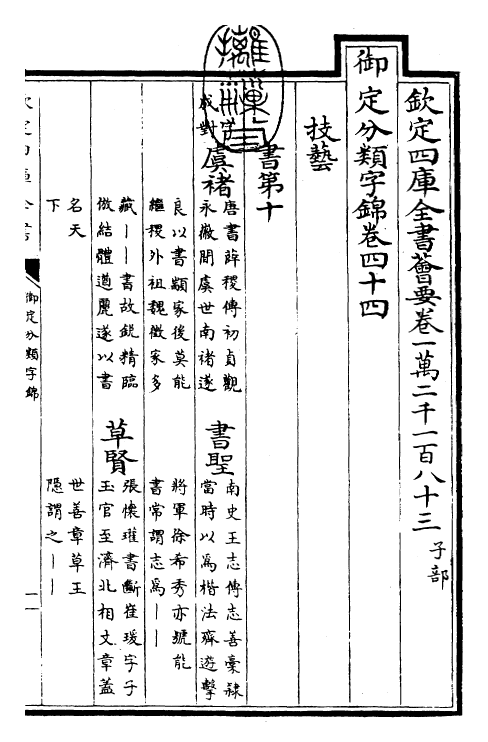 欽定四庫全書薈要卷一萬二千一百八十三 子部
御定分類字錦卷四十四
技藝
書第十
成對
虞褚
唐書薛稷傳初貞觀
永徽間虞世南褚遂
良以書顓家後莫能
繼稷外祖魏徵家多
藏――書故銳精臨
倣結體遒麗遂以書
名天
下
書聖
南史王志傳志善藁隸
當時以爲楷法齊遊擊
將軍徐希秀亦號能
書常謂志爲――
草賢
張懷瓘書斷崔瑗字子
玉官至濟北相文章蓋
世善章草王
隱謂之――
御定分類字錦
一